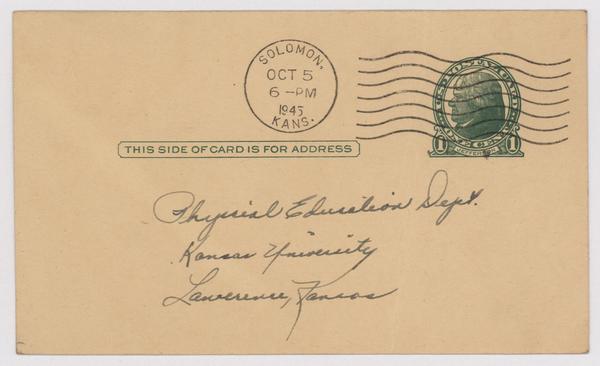 SOLOMON,
OCT 5
6 - PM
1945
KANS.
U.S. POSTAL CARD
1 ONE CENT 1
JEFFERSON
THIS SIDE OF CARD IS FOR ADDRESS
Physial Education Dept.
Kansas University
Lawerence, Kansas